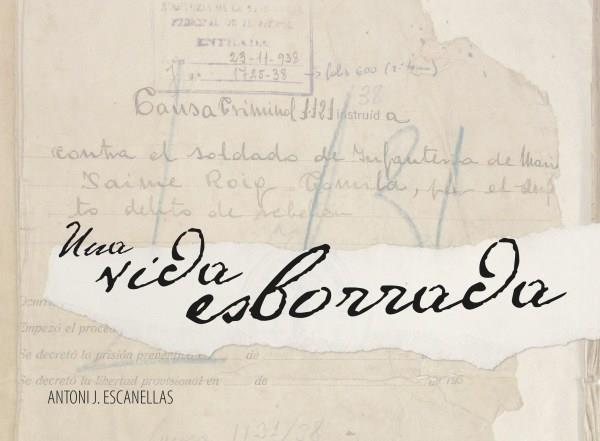 PRINCIPAL DE
ENTRADA
23-11-938
1725-38 fols 600
38
Causa Criminal 1121 instruida
contra el soldado de Infanteria de Marin
Jaime Roig Tomila, por el
to delito de rebelion
Una
vida
esborrada
Empezó el proce
Se decretó la prisión preventiva de
Se decretó la libertad provisional en de
ANTONI J. ESCANELLAS
1131/38